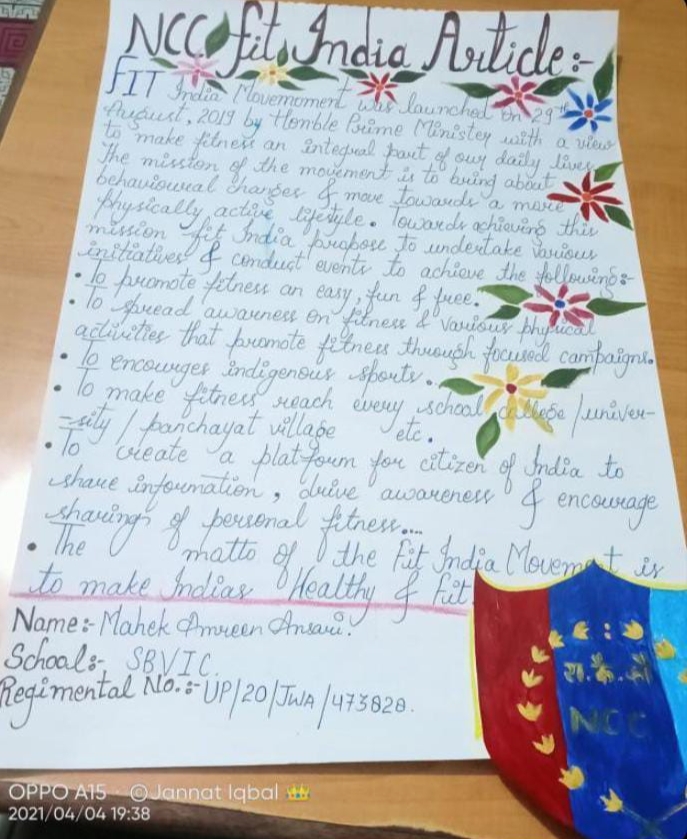 NCC fit India Article:-
FIT India Movemoment was launched on 29th
August, 2019 by Honble Prime Minister with a view
to make fitness an integral part of our daily lives
The mission of the movement is to bring about
behavioural changes & move towards a more
physically active lifestyle. Towards achieving this
mission fit India propose to undertake various
initiatives & conduct events to achieve the following:-
• To promote fitness an easy, fun & free.
• To spread awarness on fitness & various physical
activities that promote fitness through focused campaigns.
• To encourges indigenous sports...
• To make fitness reach every school, college /univer-
-sity / panchayat village etc.
• To create a platform for citizen of India to
share information, drive awareness & encourage
sharing of personal fitness....
• The matto of the Fit India Movement is
to make Indias Healthy & fit.
Name:- Mahek Amreen Ansari.
School:- SBVIC.
Regimental No.:- UP/20/JWA/473828.
रा.कै.को
NCC
OPPO A15 · ©Jannat Iqbal 👑
2021/04/04 19:38